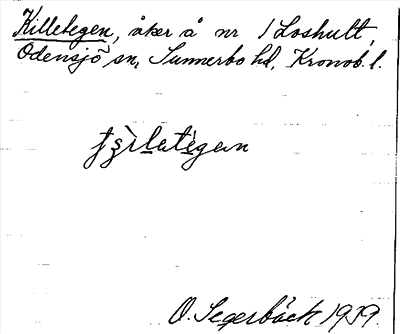 Killetegen, åker å nr 1 Loshult,
Odensjö sn, Sunnerbo hd, Kronob. l.
O. Segerbäck 1939